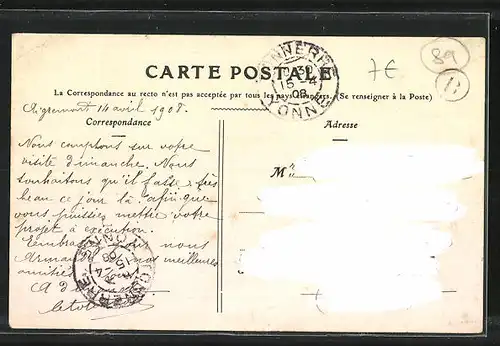 CARTE POSTALE
TONNERRE
15-4
08
YONNE
7€
89
B
La Correspondance au recto n'est pas acceptée par tous les pays étrangers. (Se renseigner à la Poste)
Aigremont 14 avril 1908.
Correspondance
Adresse
Nous comptons sur votre
visite dimanche. Nous
souhaitons qu'il fasse très
beau ce jour là afin que
vous puissiez mettre votre
projet à exécution.
Embrassez nous
Armand nos meilleures
amitiés
A
TONNERRE
15-4
08
YONNE
M